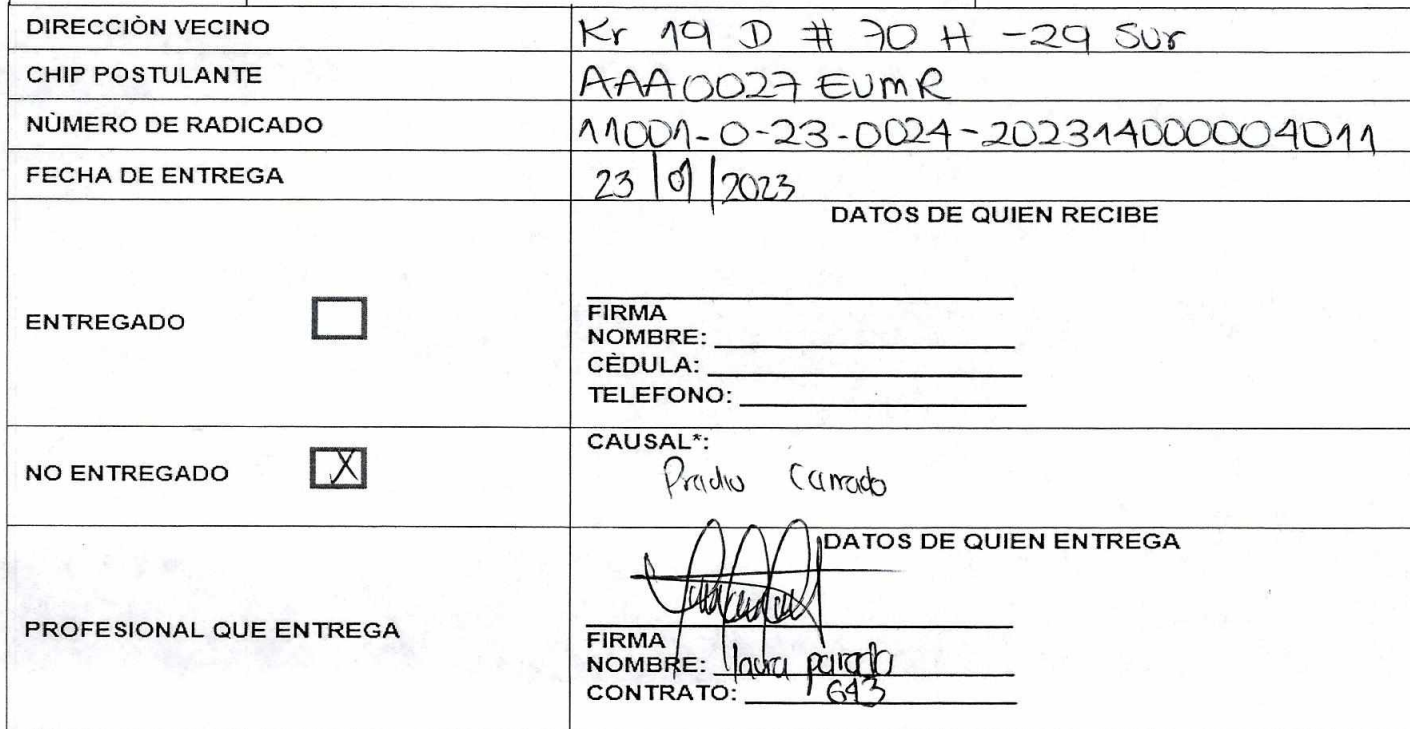 DIRECCIÒN VECINO Kr 19 D # 70 H -29 Sur
CHIP POSTULANTE AAA0027EUMR
NÙMERO DE RADICADO 11001-0-23-0024-202314000004011
FECHA DE ENTREGA 23/01/2023
DATOS DE QUIEN RECIBE
ENTREGADO
FIRMA
NOMBRE:
CÈDULA:
TELEFONO:
NO ENTREGADO X
CAUSAL*:
Predio Cerrado
DATOS DE QUIEN ENTREGA
PROFESIONAL QUE ENTREGA
FIRMA
NOMBRE: parada
CONTRATO: 643